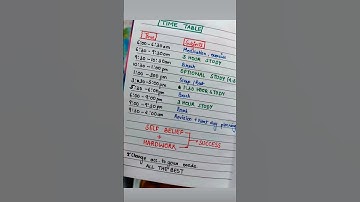 TIME TABLE
Time Subjects
6:00-6:30am Meditation, exercise
6:30-9:30am 3 HOUR STUDY
9:30-10:30am Break
10:30-1:00am OPTIONAL STUDY
1:00-3:00pm Sleep/Rest
3:30-5:00pm 1:30 HOUR STUDY
5:30-6:00pm Break
6:00-9:00pm 3 HOUR STUDY
9:00-9:30pm Break
9:30-6:00am Revision + Next day planning
SELF BELIEF
+
HARDWORK
→ SUCCESS
*Change acc. to your needs
ALL THE BEST